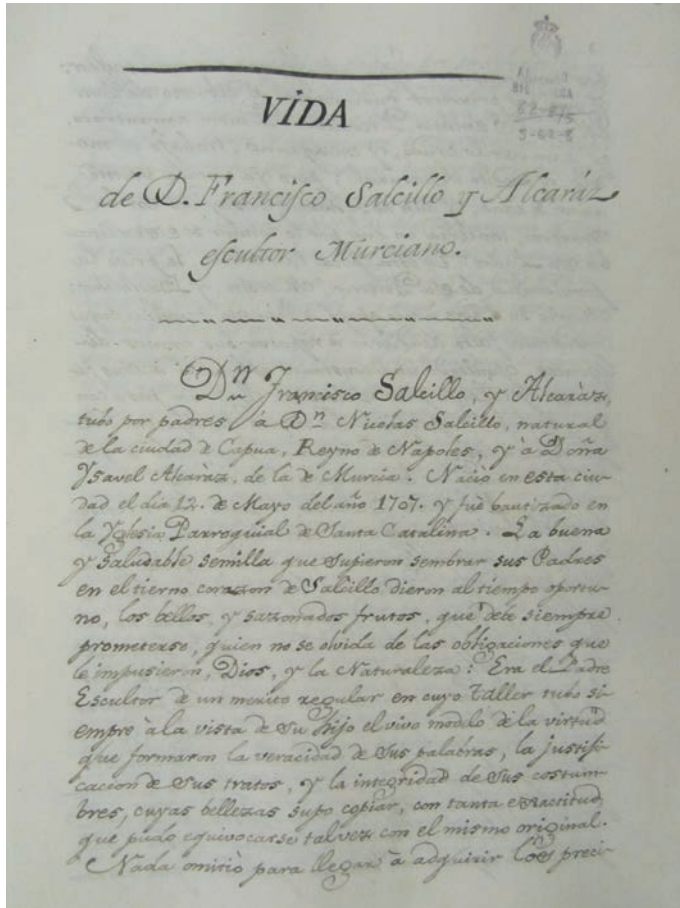 VIDA
de D. Francisco Salcillo y Alcaráz
escultor Murciano.
Dn. Francisco Salcillo, y Alcaràz,
tubo por padres à Dn. Nicolas Salcillo, natural
de la ciudad de Capua, Reyno de Napoles, y à Doña
Ysavel Alcaràz, de la de Murcia. Nació en esta ciu-
dad el dia 12. de Mayo del año 1707. y fuè bautizado en
la Yglesia Parroquial de Santa Catalina. La buena
y Saludable Semilla que Supieron Sembrar sus Padres
en el tierno corazon de Salcillo dieron al tiempo oportu-
no, los bellos, y sazonados frutos, que debe siempre
prometerse, quien no se olvida de las obligaciones que
le impusieron, Dios, y la Naturaleza: Era el Padre
Escultor de un merito regular en cuyo Taller tubo si-
empre à la vista de Su hijo el vivo modelo de la virtud
que formaron la veracidad de Sus palabras, la justifi-
cacion de Sus tratos, y la integridad de Sus costum-
bres, cuyas bellezas supo copiar, con tanta exactitud,
que pudo equivocarse tal vez con el mismo original.
Nada omitiò para llegar à adquirir los preci-